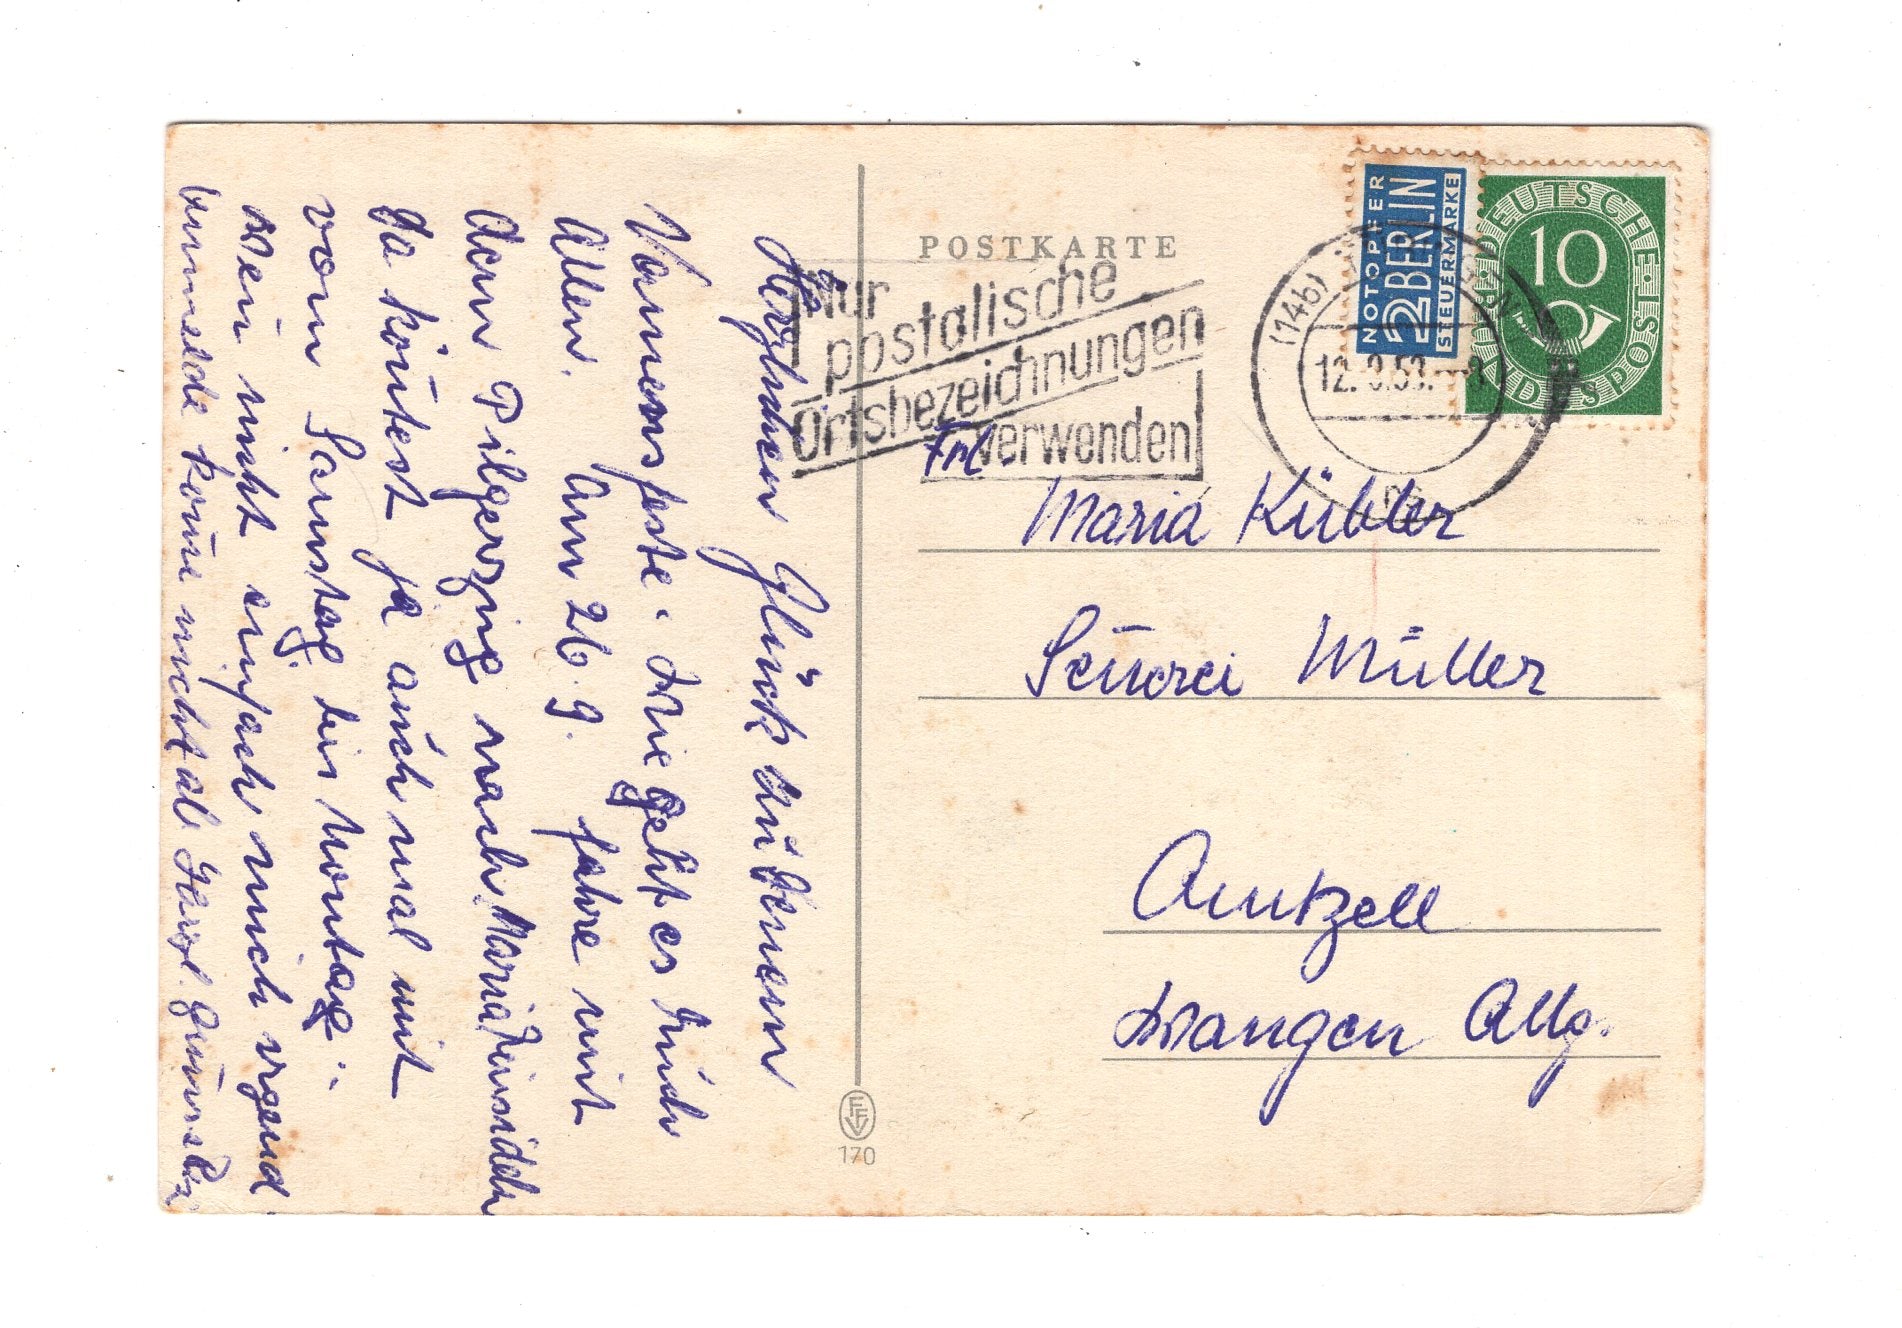 Herzlichen Glück zu Deinem
Namensfeste. Wie geht es Euch
Allen. Am 26.9. fahre mit
dem Pilgerzug nach Maria Einsiedeln
da könntest ja auch mal mit
vom Samstag bis Montag.
wenn nicht einfach mich irgend
komme nicht ab. Herzl.
POSTKARTE
Nur
postalische
Ortsbezeichnungen
verwenden
NOTOPFER
2 BERLIN
STEUERMARKE
DEUTSCHE BUNDESPOST
10
(14b)
12. 9.53.
Frl.
Maria Kübler
Senerei Müller
Amtzell
Wangen Allg.
EFV
170